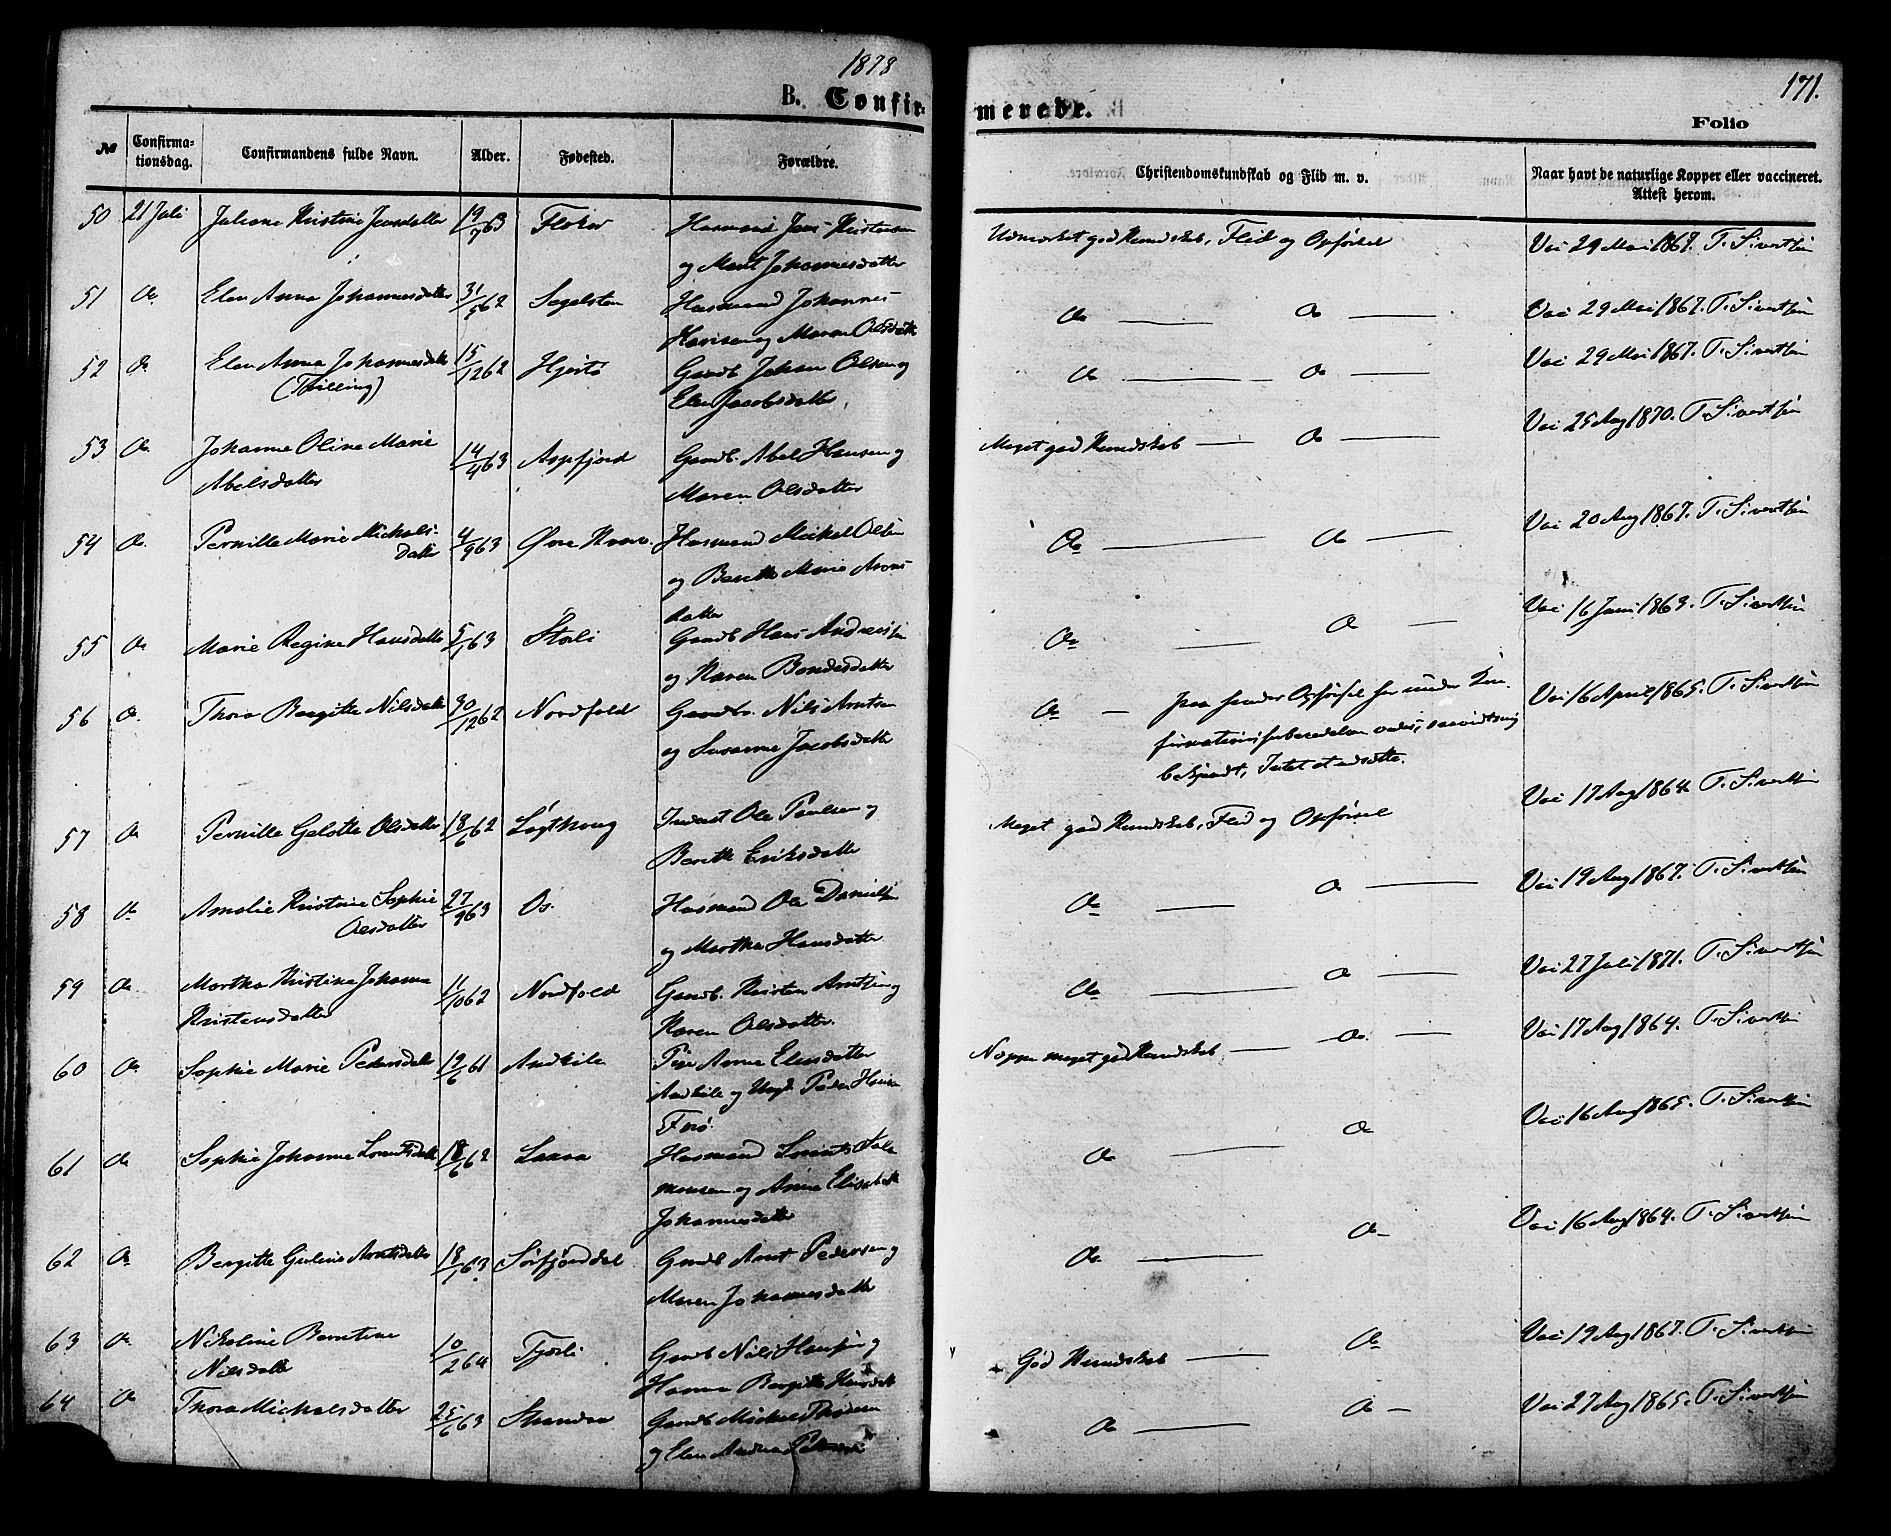 1878
171.
B. Confirmerede.
Folio
№ Confirmationsdag. Confirmandens fulde Navn. Alder. Fødested. Forældre. Christendomskundskab og Flid m. v. Naar havt de naturlige Kopper eller vaccineret. Attest herom.
50 21 Juli Juliane Kristine Jensdatter 19/7 63 Husmand Jens Kristensen Udmerket god Kundskab, Flid og Opførsel Vac 29 Mai 1867. T. Sivertsen
og Marit Johannesdatter
51 Do Elen Anna Johannesdatter 31/5 62 Segelsten Husmand Johannes Do Do Vac 29 Mai 1867. T. Sivertsen
Hansen og Maren Olsdatter
52 Do Elen Anna Johannesdatter 15/12 62 Hjertø Gaardb. Johan Olsen og Do Do Vac 29 Mai 1867. T. Sivertsen
(Tvilling) Elen Jacobsdatter
53 Do Johanna Oline Marie 14/4 63 Aspfjord Gaardb. Abel Hansen og Meget god Kundskab Do Vac 25 Aug 1870. T. Sivertsen
Abelsdatter Maren Olsdatter
54 Do Pernille Marie Michals- 4/9 63 Øvre Husmand Meikal Olsen Do Do Vac 20 Aug 1867. T. Sivertsen
datter og Beritte Marie Arons-
datter
55 Do Marie Regine Hansdatter 5/1 63 Storli Gaardb Hans Andreassen Do Do Vac 16 Juni 1863. T. Sivertsen
og Karen Bondesdatter
56 Do Thora Bergitte Nilsdatter 30/12 62 Nordfold Gaardb. Nils Arntsen Do paa hendes Opførsel har under Con- Vac 16 April 1865. T. Sivertsen
og Susanna Jacobsdatter firmationsforberedelsen været, saavidt mig
bekjendt, Intet at udsætte.
57 Do Pernille Gelotte Olsdatter 18/6 62 Løgthoug Inderst Ole Paulsen og Meget god Kundskab, Flid og Opførsel Vac 17 Aug 1864. T. Sivertsen
Berith Eriksdatter
58 Do Amalie Kristine Sophie 27/9 63 Os Husmand Ole Danielsen Do Do Vac 19 Aug 1867. T. Sivertsen
Olsdatter og Martha Hansdatter
59 Do Martha Kristine Johanna 11/10 62 Nordfold Gaardb. Kristen Arntsen og Do Do Vac 27 Juli 1871. T. Sivertsen
Kristensdatter Karen Olsdatter.
60 Do Sophie Marie Pedersdatter 19/6 61 Andkile Pige Anne Eliasdatter Neppe meget god Kundskab Do. Vac 17 Aug 1864. T. Sivertsen
Andkile og Ungk. Peder Hansen
61 Do Sophie Johanna Lorentsdatter 18/6 62 Husmand Lorents Salo- Do Do Vac 16 Aug 1865. T. Sivertsen
monsen og Anne Elisabeth
Johannesdatter
62 Do Bergitte Guline Arntsdatter 18/1 63 Sørfjorddal Gaardb Arnt Pedersen og Do Do Vac 16 Aug 1864. T. Sivertsen
Maren Johannesdatter
63 Do Nikoline Berntine 10/2 64 Tjorli Gaardb Nils Hansen og God Kundskab Do Vac 19 Aug 1867. T. Sivertsen
Nilsdatter Hanna Bergitte Hansdatter
64 Do Thora Michalsdatter 25/6 63 Strandaa Gaardb Michal Do Do Vac 27 Aug 1865. T. Sivertsen
og Elen Andrea